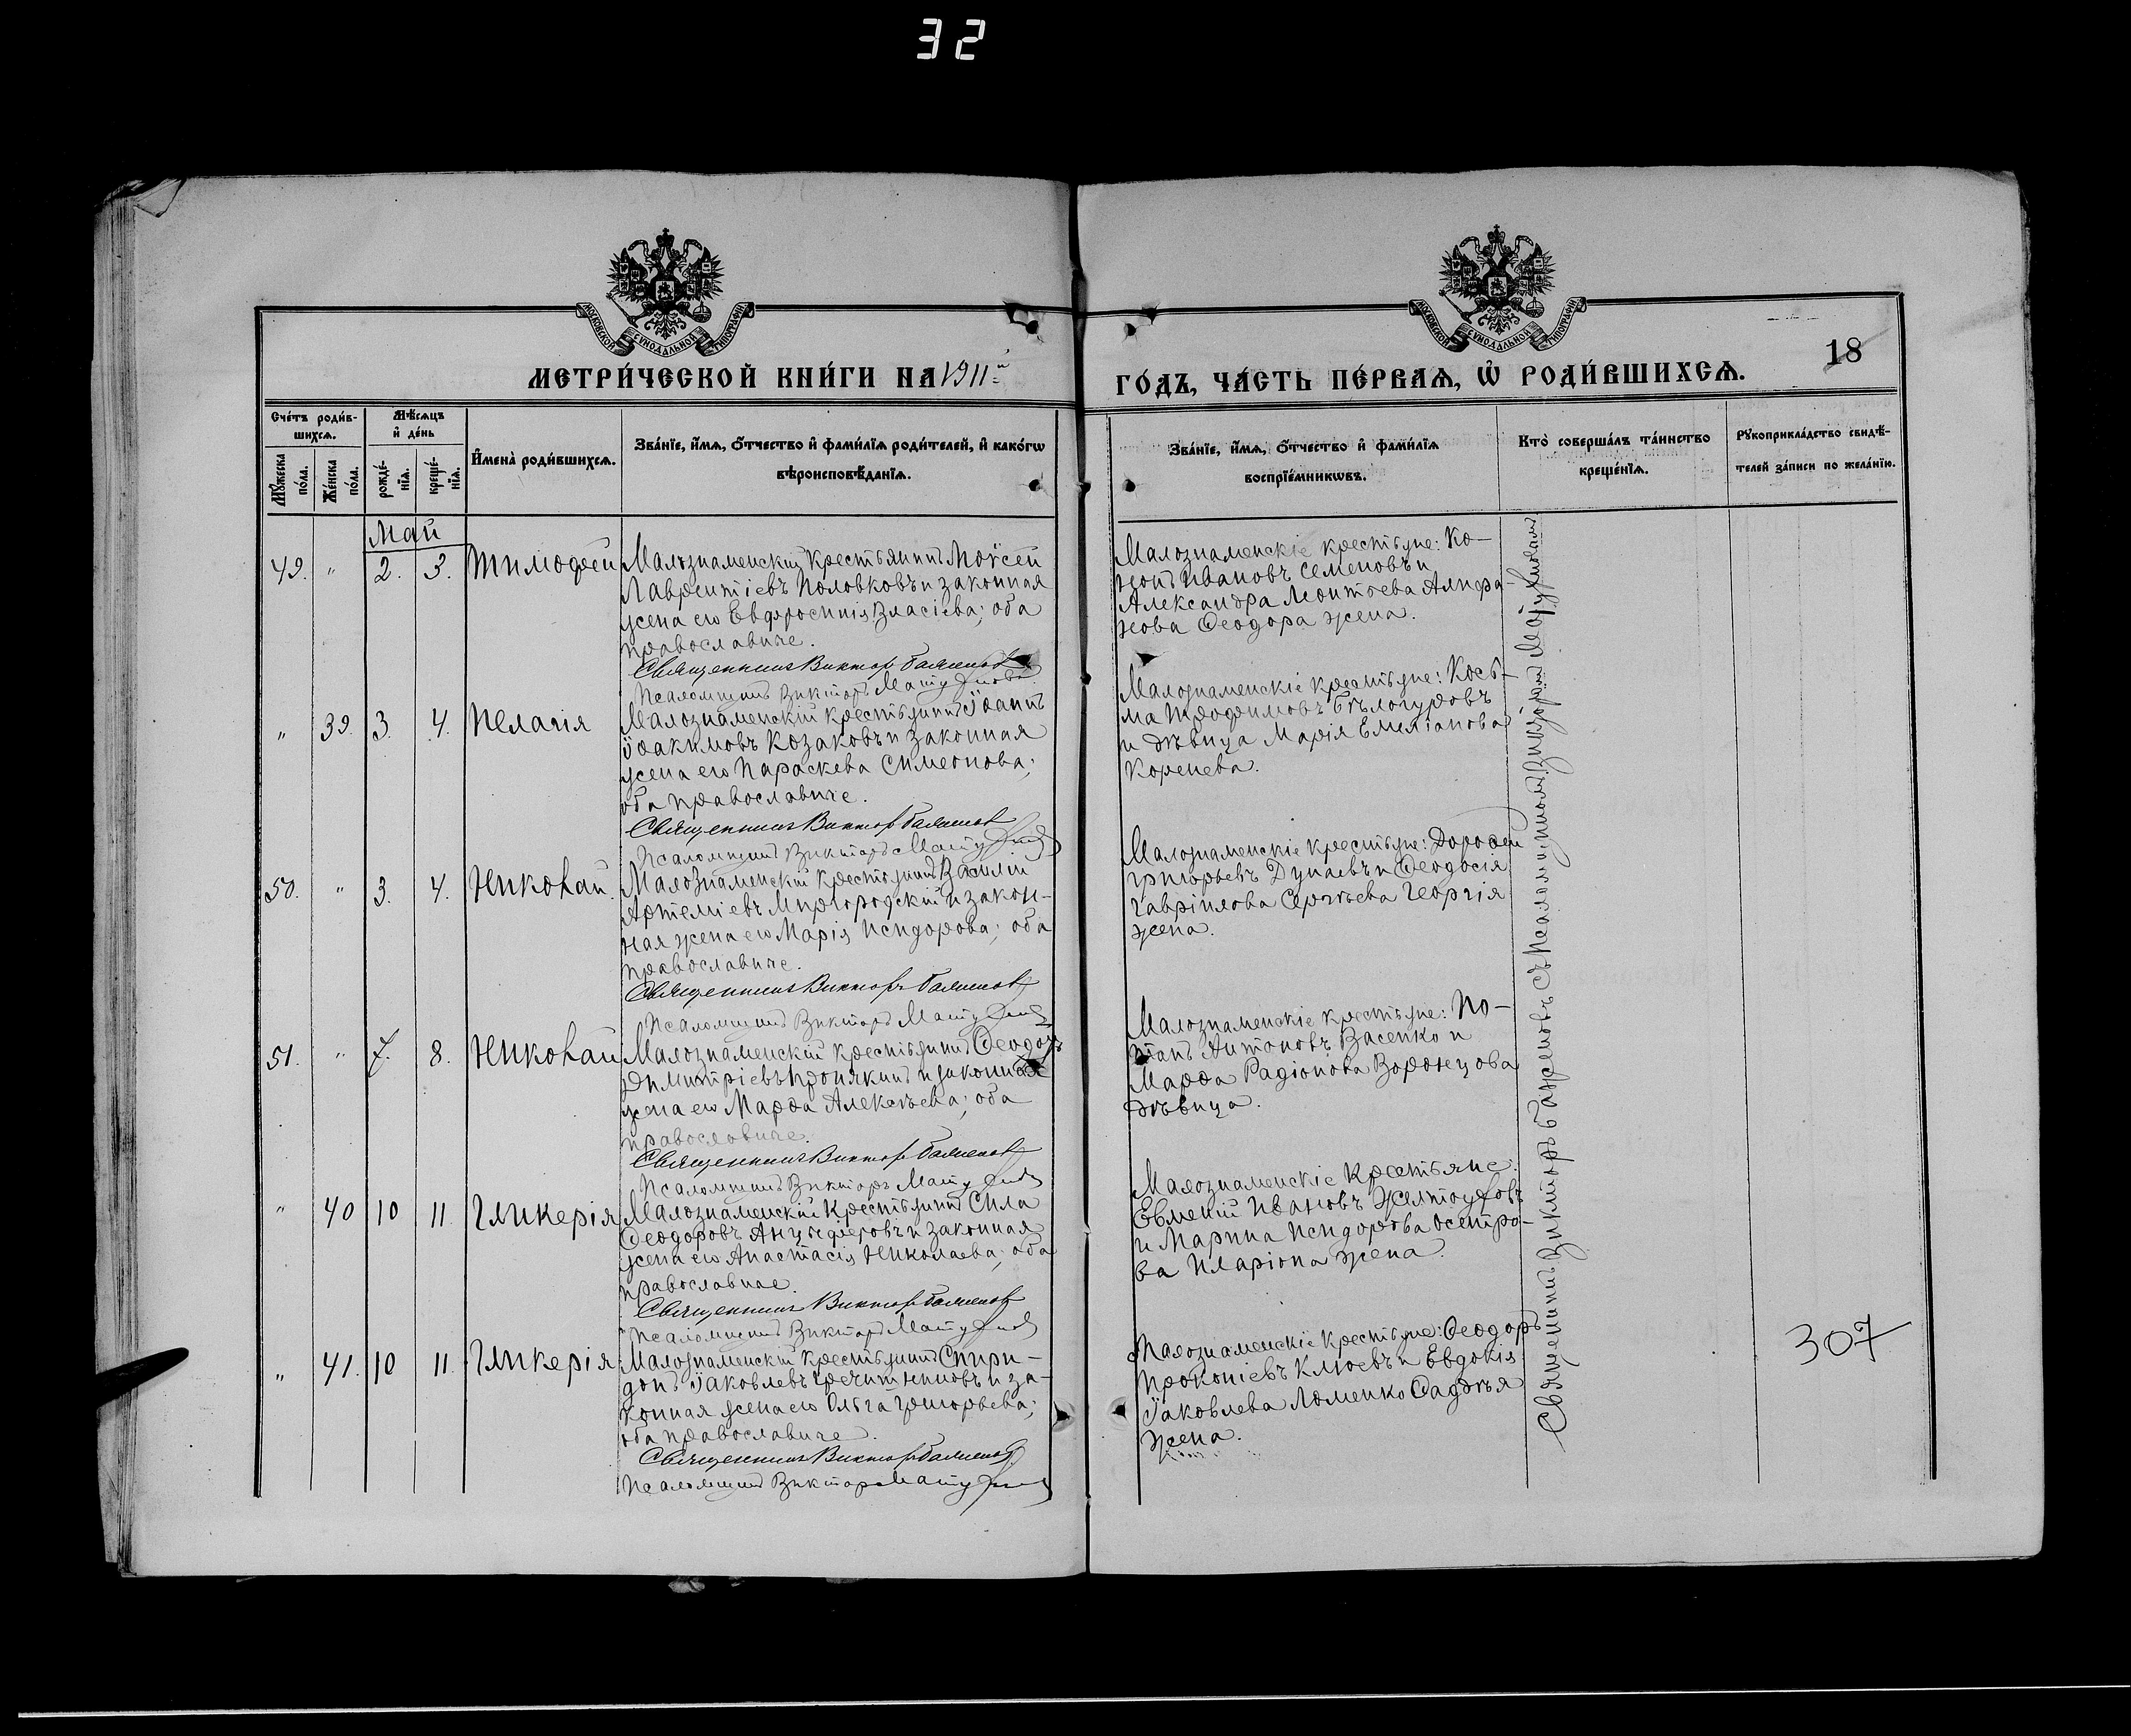 32
МОСКОВСКОЙ СѴНОДАЛЬНОЙ ТИПОГРАФІИ
МОСКОВСКОЙ СѴНОДАЛЬНОЙ ТИПОГРАФІИ
18
МЕТРИ́ЧЕСКОЙ КНИ́ГИ НА 1911й
ГО́ДЪ, ЧА́СТЬ ПЕ́РВАѦ, Ѽ РОДИ́ВШИХСѦ.
Сче́тъ роди́в-
шихсѧ.
Мѣ́сѧцъ
и҆ де́нь
Мꙋ́жеска по́ла.
Же́нска по́ла.
рожде́-
нїѧ.
креще́-
нїѧ.
И҆мена̀ роди́вшихсѧ.
Зва́нїе, и҆́мѧ, ѻ҆́тчество и҆ фами́лїѧ роди́телей, и҆ како́гѡ
вѣроисповѣ́данїѧ.
Зва́нїе, и҆́мѧ, ѻ҆́тчество и҆ фами́лїѧ
воспрїе́мникѡвъ.
Кто̀ соверша́лъ та́инство
креще́нїѧ.
Рꙋкоприкла́дство свидѣ́-
телей за́писи по жела́нїю.
Май
49. " 2. 3. Тимоѳей
Малознаменскій крестьянинъ Моѵсей
Лаврентіевъ Половковъ и законная
жена его Евфросинія Власіева; оба
православные.
Священникъ Викторъ Баженовъ
Псаломщикъ Викторъ
Малознаменскіе крестьяне: Ко-
нонъ Ивановъ Семеновъ и
Александра Леонтьева
нова Ѳеодора жена.
" 39. 3. 4. Пелагія
Малознаменскій крестьянинъ Іоаннъ
Іоакимовъ Козаковъ и законная
жена его Параскева Симеонова;
оба православные.
Священникъ Викторъ Баженовъ
Псаломщикъ Викторъ
Малознаменскіе крестьяне: Кось-
ма Трофимовъ Бѣлогуровъ
и дѣвица Марія Емеліанова
Коренева.
50. " 3. 4. Николай.
Малознаменскій крестьянинъ Василій
Артеміевъ Миргородскій и закон-
ная жена его Марія Исидорова; оба
православные.
Священникъ Викторъ Баженовъ
Псаломщикъ Викторъ
Малознаменскіе крестьяне: Дороѳей
Григорьевъ Дунаевъ и Ѳеодосія
Гавріилова Сергѣева Георгія
жена.
51. " 7. 8. Николай
Малознаменскій крестьянинъ Ѳеодоръ
Димитріевъ Пронякинъ и законная
жена его Марѳа Алексѣева; оба
православные.
Священникъ Викторъ Баженовъ
Псаломщикъ Викторъ
Малознаменскіе крестьяне: По-
тапъ Антоновъ Васенко и
Марѳа Радіонова Воронцова
дѣвица.
" 40 10 11. Гликерія
Малознаменскій крестьянинъ Сила
Ѳеодоровъ Анцыферовъ и законная
жена его Анастасія Николаева; оба
православные.
Священникъ Викторъ Баженовъ
Псаломщикъ Викторъ
Малознаменскіе крестьяне
Евменій Ивановъ Желтоуховъ
и Марина Исидорова Осетро-
ва Иларіона жена.
" 41. 10 11. Гликерія
Малознаменскій крестьянинъ Спири-
донъ Іаковлевъ и за-
конная жена его Ольга Григорьева;
оба православные.
Священникъ Викторъ Баженовъ
Псаломщикъ Викторъ
Малознаменскіе крестьяне: Ѳеодоръ
Прокопіевъ Клюевъ и Евдокія
Іаковлева Ломенко Ѳаддѣя
жена.
Священникъ Викторъ Баженовъ съ Псаломщикомъ Викторомъ
307